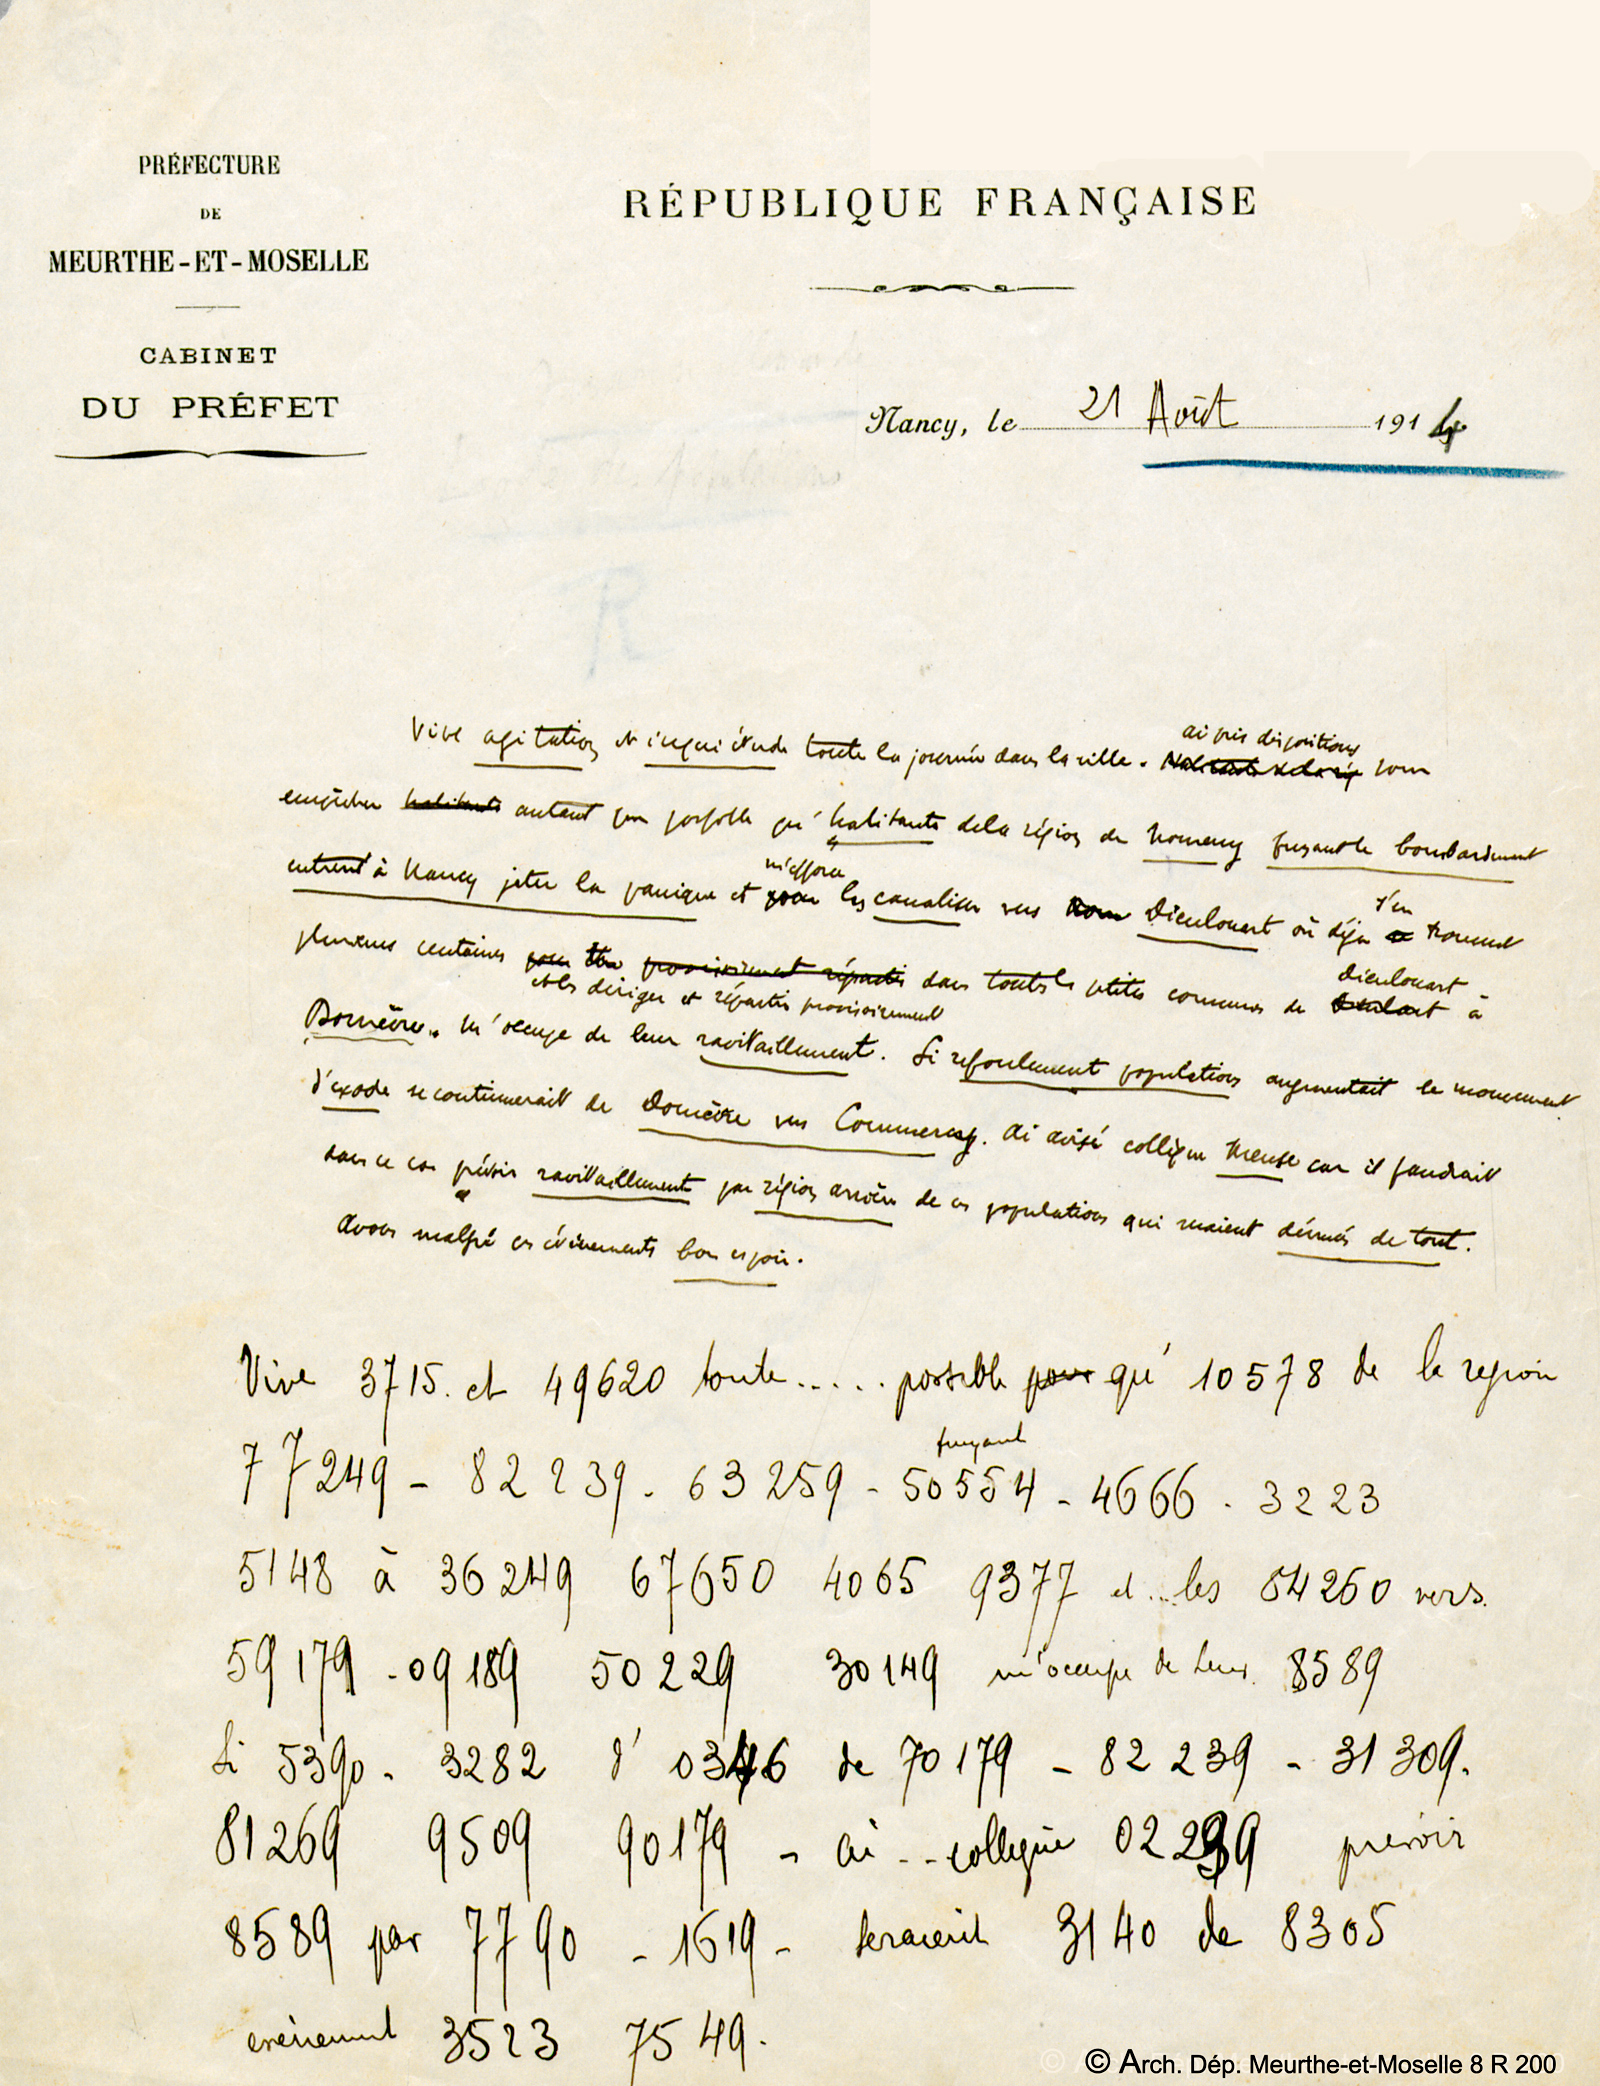 PRÉFECTURE
DE
MEURTHE-ET-MOSELLE
CABINET
DU PRÉFET
RÉPUBLIQUE FRANÇAISE
Nancy, le 21 Août 1914
Vive agitation et inquiétude toute la journée dans la ville. ai pris dispositions pour
empêcher habitants autant que possible qu' habitants de la région de Nomeny fuyant le bombardement
entrent à Nancy jeter la panique et m'efforce les canaliser vers Dieulouart où déjà s'en trouvent
plusieurs centaines et les diriger et répartir provisoirement dans toutes les petites communes de Dieulouart à
Domèvre. M'occupe de leur ravitaillement. Si refoulement populations augmentait le mouvement
d'exode se continuerait de Domèvre vers Commercy. Ai avisé collègue Meuse car il faudrait
dans ce cas prévoir ravitaillement par région arrière de ces populations qui seraient dénués de tout.
Avons malgré ces événements bon espoir.
Vive 3715. et 49620 toute..... possible pour qu' 10578 de la region
77249 - 82239 - 63259 - fuyant 50554 - 4666 - 3223
5148 à 36249 67650 4065 9377 et ... les 84260 vers.
59179 - 09189 50229 30149 m'occupe de leur 8589
Si 5390 - 3282 d' 0346 de 70179 - 82239 - 31309.
81269 9509 90179 - ai .. collegue 02299 prévoir
8589 par 7790 - 1619 - seraient 3140 de 8305
evenement 3523 7549.
© Arch. Dép. Meurthe-et-Moselle 8 R 200